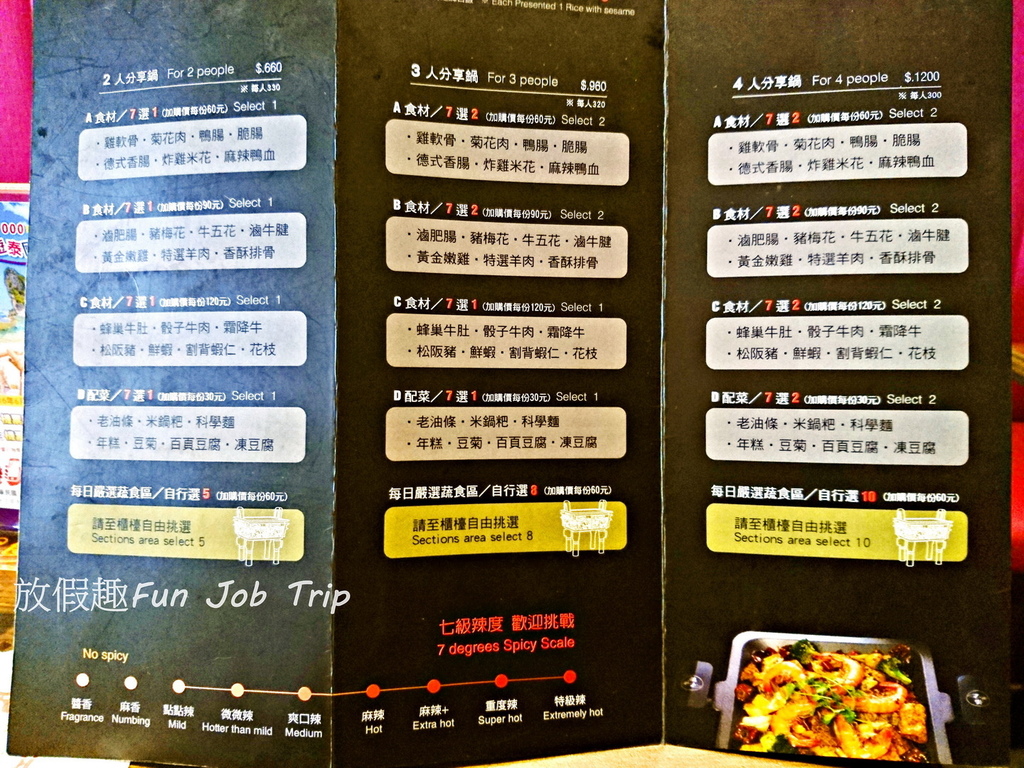 ※ Each Presented 1 Rice with sesame
2 人分享鍋 For 2 people $.660
※ 每人330
A 食材／7 選 1 (加購價每份60元) Select 1
・雞軟骨・菊花肉・鴨腸・脆腸
・德式香腸・炸雞米花・麻辣鴨血
B 食材／7 選 1 (加購價每份90元) Select 1
・滷肥腸・豬梅花・牛五花・滷牛腱
・黃金嫩雞・特選羊肉・香酥排骨
C 食材／7 選 1 (加購價每份120元) Select 1
・蜂巢牛肚・骰子牛肉・霜降牛
・松阪豬・鮮蝦・割背蝦仁・花枝
D 配菜／7 選 1 (加購價每份30元) Select 1
・老油條・米鍋粑・科學麵
・年糕・豆菊・百頁豆腐・凍豆腐
每日嚴選蔬食區／自行選 5 (加購價每份60元)
請至櫃檯自由挑選
Sections area select 5
3 人分享鍋 For 3 people $.960
※ 每人320
A 食材／7 選 2 (加購價每份60元) Select 2
・雞軟骨・菊花肉・鴨腸・脆腸
・德式香腸・炸雞米花・麻辣鴨血
B 食材／7 選 2 (加購價每份90元) Select 2
・滷肥腸・豬梅花・牛五花・滷牛腱
・黃金嫩雞・特選羊肉・香酥排骨
C 食材／7 選 1 (加購價每份120元) Select 1
・蜂巢牛肚・骰子牛肉・霜降牛
・松阪豬・鮮蝦・割背蝦仁・花枝
D 配菜／7 選 1 (加購價每份30元) Select 1
・老油條・米鍋粑・科學麵
・年糕・豆菊・百頁豆腐・凍豆腐
每日嚴選蔬食區／自行選 8 (加購價每份60元)
請至櫃檯自由挑選
Sections area select 8
4 人分享鍋 For 4 people $.1200
※ 每人300
A 食材／7 選 2 (加購價每份60元) Select 2
・雞軟骨・菊花肉・鴨腸・脆腸
・德式香腸・炸雞米花・麻辣鴨血
B 食材／7 選 2 (加購價每份90元) Select 2
・滷肥腸・豬梅花・牛五花・滷牛腱
・黃金嫩雞・特選羊肉・香酥排骨
C 食材／7 選 2 (加購價每份120元) Select 2
・蜂巢牛肚・骰子牛肉・霜降牛
・松阪豬・鮮蝦・割背蝦仁・花枝
D 配菜／7 選 2 (加購價每份30元) Select 2
・老油條・米鍋粑・科學麵
・年糕・豆菊・百頁豆腐・凍豆腐
每日嚴選蔬食區／自行選 10 (加購價每份60元)
請至櫃檯自由挑選
Sections area select 10
放假趣Fun Job Trip
七級辣度 歡迎挑戰
7 degrees Spicy Scale
No spicy
醬香 麻香 點點辣 微微辣 爽口辣 麻辣 麻辣+ 重度辣 特級辣
Fragrance Numbing Mild Hotter than mild Medium Hot Extra hot Super hot Extremely hot